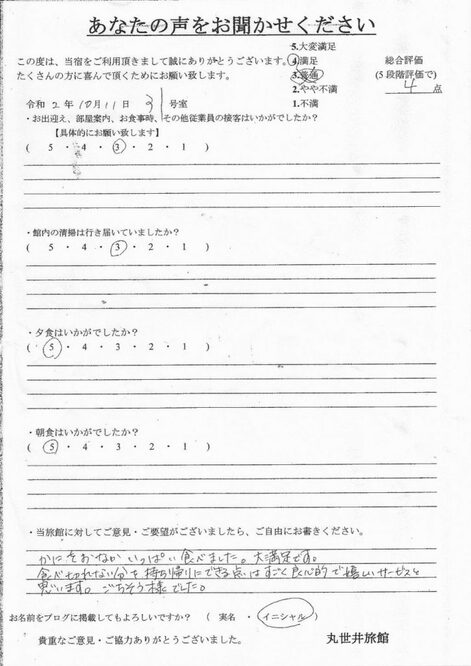 あなたの声をお聞かせください
この度は、当宿をご利用頂きまして誠にありがとうございます。
たくさんの方に喜んで頂くためにお願い致します。
5.大変満足
4.満足
3.普通
2.やや不満
1.不満
総合評価
(5段階評価で)
4 点
令和 2 年 10月 11日 号室
・お出迎え、部屋案内、お食事時、その他従業員の接客はいかがでしたか?
【具体的にお願い致します】
( 5 ・ 4 ・ 3 ・ 2 ・ 1 )
・館内の清掃は行き届いていましたか?
( 5 ・ 4 ・ 3 ・ 2 ・ 1 )
・夕食はいかがでしたか?
( 5 ・ 4 ・ 3 ・ 2 ・ 1 )
・朝食はいかがでしたか?
( 5 ・ 4 ・ 3 ・ 2 ・ 1 )
・当旅館に対してご意見・ご要望がございましたら、ご自由にお書きください。
かにでおなかいっぱい食べました。大満足です。
食べ切れない分を持ち帰りにできる点はすごく良心的で嬉しいサービスと
思います。ごちそう様でした。
お名前をブログに掲載してもよろしいですか? ( 実名 ・ イニシャル )
貴重なご意見・ご協力ありがとうございました。
丸世井旅館